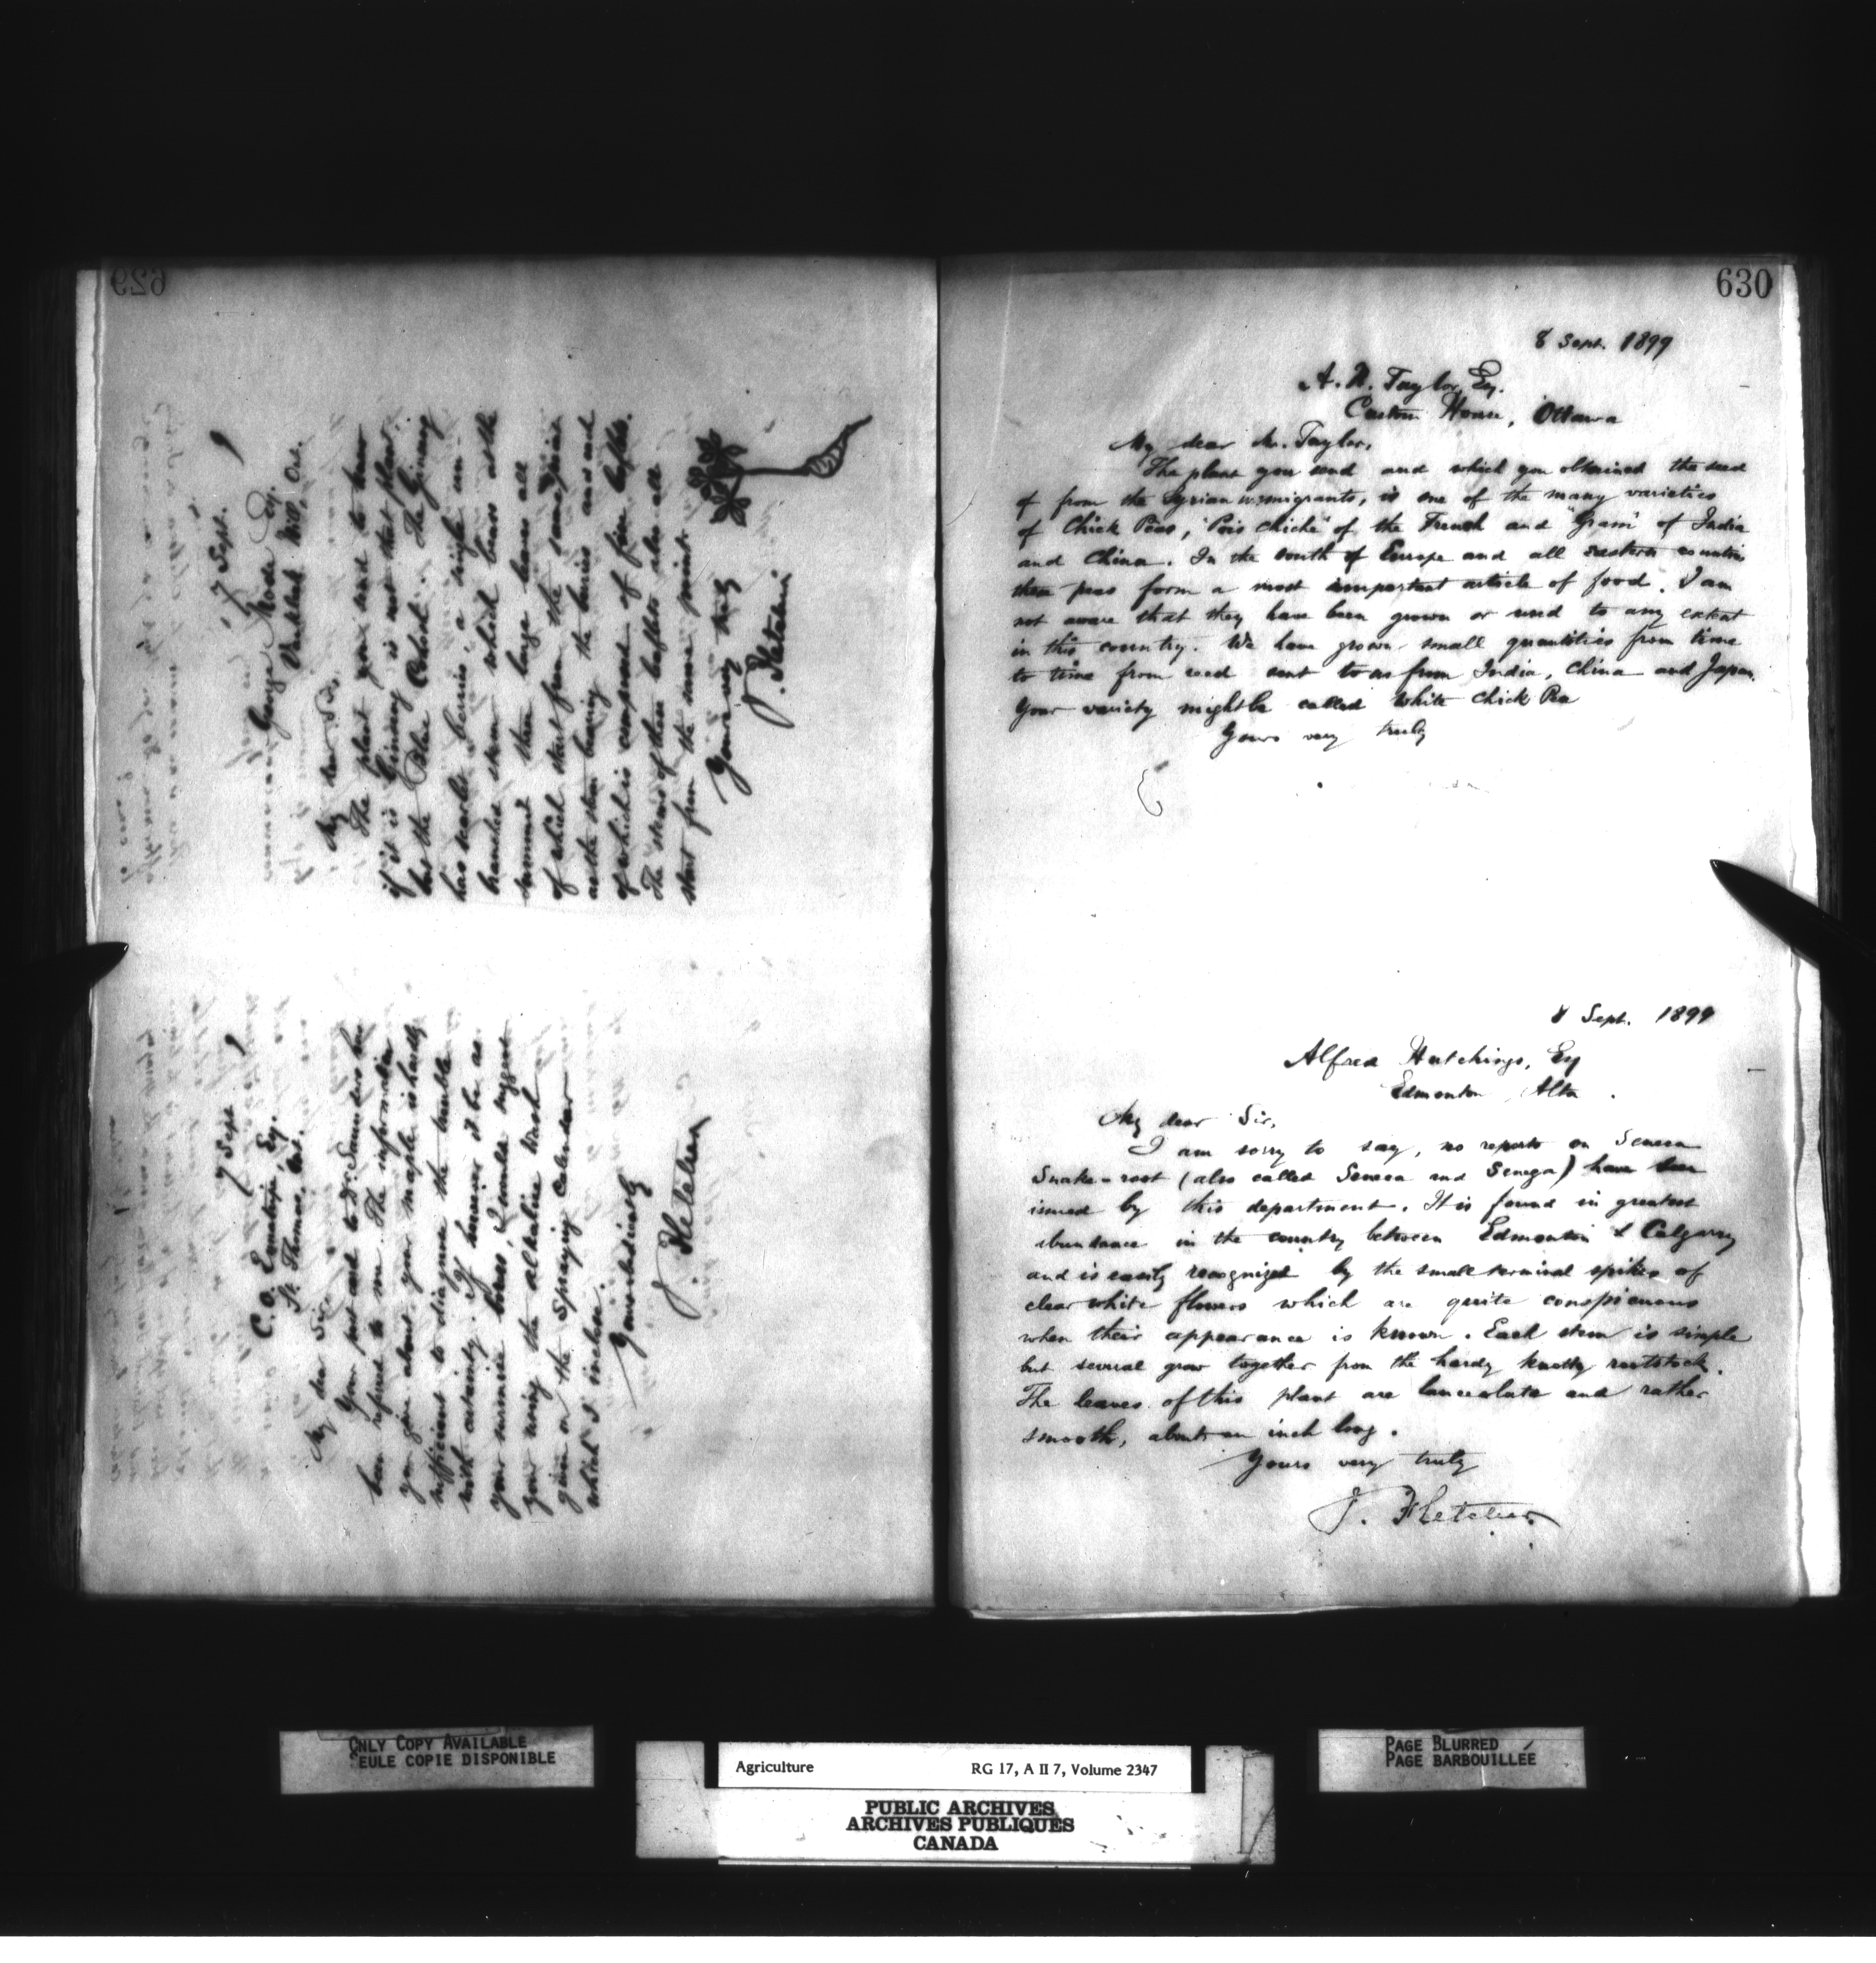 629
7 Sept.
George Mode Esq.
Vankleek Hill, Ont.
My dear Sir,
The plant you send to know
if it is Ginseng is not that plant
but the Blue Cohosh. The Ginseng
has scarlet berries, a single un-
branched stem which bears at the
summit three large leaves all
of which start from the same point
as the stem bearing the berries and each
of which is composed of five leaflets.
The stems of these leaflets also all
start from the same point.
Yours very truly
J. Fletcher
7 Sept
C. O. Ermatinger, Esq.
St. Thomas, Ont.
My dear Sir
Your post card to Dr. Saunders has
been referred to me. The information
you give about your maple is hardly
sufficient to diagnose the trouble
with certainty. If however it be as
your surmise borers, I would suggest
your using the alkaline wash
given on the Spraying Calendar
which I inclose.
Yours obediently
J. Fletcher
630
8 Sept. 1899
A. N. Taylor, Esq.
Custom House, Ottawa
My dear Mr. Taylor,
The plant you send and which you obtained the seed
of from the Syrian immigrants, is one of the many varieties
of Chick Peas, "Pois chiche" of the French and "Gram" of India
and China. In the south of Europe and all eastern countries
these peas form a most important article of food. I am
not aware that they have been grown or used to any extent
in this country. We have grown small quantities from time
to time from seed sent to us from India, China and Japan.
Your variety might be called White Chick Pea
Yours very truly
8 Sept. 1899
Alfred Hutchings, Esq
Edmonton, Alta.
My dear Sir,
I am sorry to say, no reports on Seneca
Snake-root (also called Seneca and Senega) have been
issued by this department. It is found in greatest
abundance in the country between Edmonton & Calgary
and is easily recognized by the small terminal spikes of
clear white flowers which are quite conspicuous
when their appearance is known. Each stem is simple
but several grow together from the hardy knotty rootstock.
The leaves of this plant are lanceolate and rather
smooth, about an inch long.
Yours very truly
J. Fletcher
ONLY COPY AVAILABLE
SEULE COPIE DISPONIBLE
Agriculture RG 17, A II 7, Volume 2347
PUBLIC ARCHIVES
ARCHIVES PUBLIQUES
CANADA
PAGE BLURRED
PAGE BARBOUILLÉE